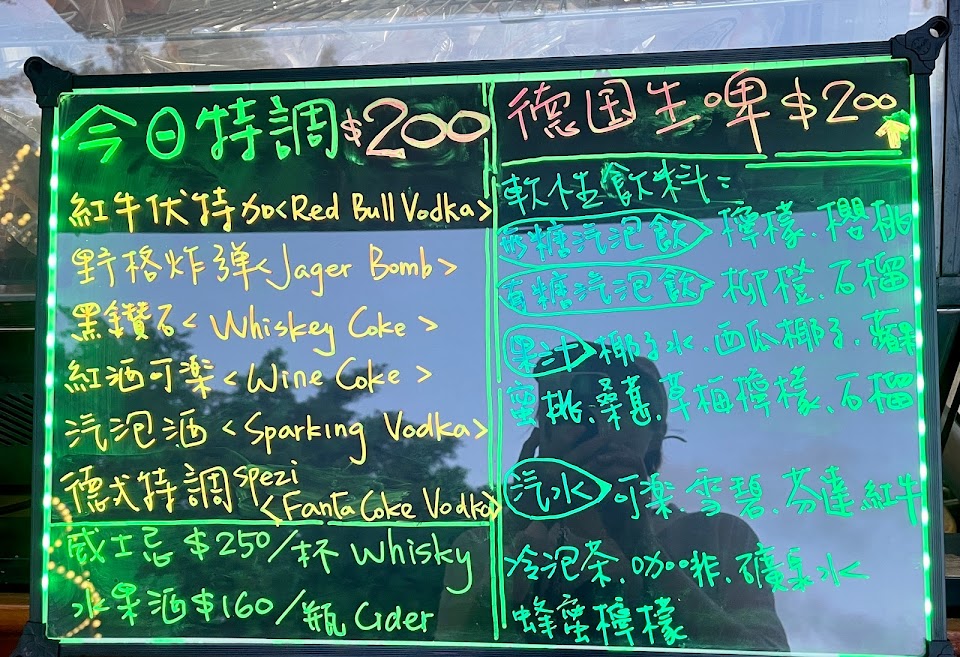 今日特調$200
紅牛伏特加<Red Bull Vodka>
野格炸彈<Jager Bomb>
黑鑽石<Whiskey Coke>
紅酒可樂<Wine Coke>
汽泡酒<Sparking Vodka>
德式特調spezi
<Fanta Coke Vodka>
威士忌$250/杯 Whisky
水果酒$160/瓶 Cider
德国生啤$200↑
軟性飲料:
糖汽泡飲>檸檬.櫻桃
有糖汽泡飲>柳橙.石榴
果汁>椰子水.西瓜椰子.蘋果
蜜桃.桑葚.草梅檸檬.石榴
汽水>可樂.雪碧.芬達.紅牛
冷泡茶.咖啡.礦泉水
蜂蜜檸檬